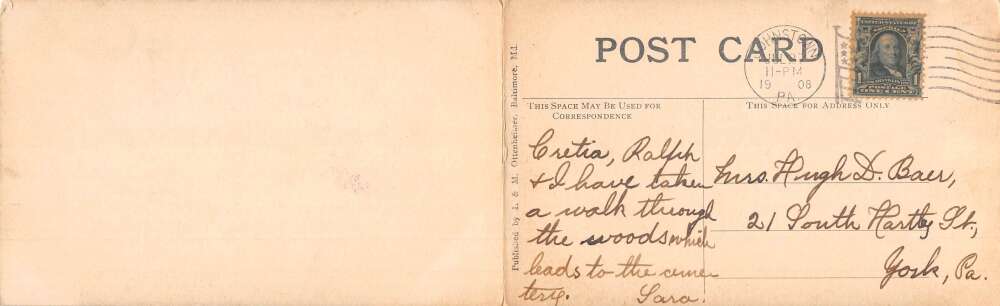 POST CARD
JOHNSTOWN
11-PM
19 08
PA.
UNITED STATES OF
AMERICA
1 FRANKLIN 1
POSTAGE
ONE CENT
THIS SPACE MAY BE USED FOR
CORRESPONDENCE
THIS SPACE FOR ADDRESS ONLY
Published by I. & M. Ottenheimer, Baltimore, Md.
Cretia, Ralph
& I have taken
a walk through
the woods which
leads to the ceme
tery. Sara.
Mrs. Hugh D. Baer,
21 South Hartley St.,
York, Pa.